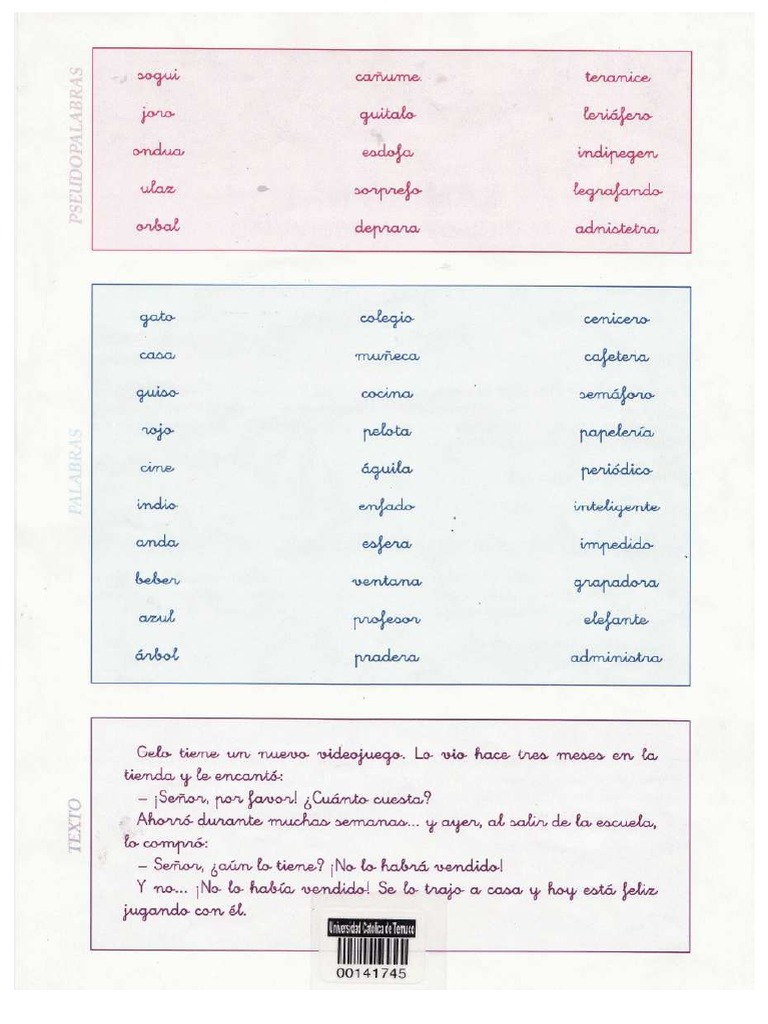 PSEUDOPALABRAS
sogui cañume. teranice
joro guitalo leriáfero
ondua esdofa indipegen
ulaz sorprefo legrafando
orbal deprara adnistetra
PALABRAS
gato colegio cenicero
casa muñeca cafetera
guiso cocina semáforo
rojo pelota papelería
cine águila periódico
indio enfado inteligente
anda esfera impedido
beber ventana grapadora
azul profesor elefante
árbol pradera administra
TEXTO
Celo tiene un nuevo videojuego. Lo vio hace tres meses en la
tienda y le encantó:
– ¡Señor, por favor! ¿Cuánto cuesta?
Ahorró durante muchas semanas... y ayer, al salir de la escuela,
lo compró:
– Señor, ¿aún lo tiene? ¡No lo habrá vendido!
Y no... ¡No lo había vendido! Se lo trajo a casa y hoy está feliz
jugando con él.
Universidad Catolica de Temuco
00141745